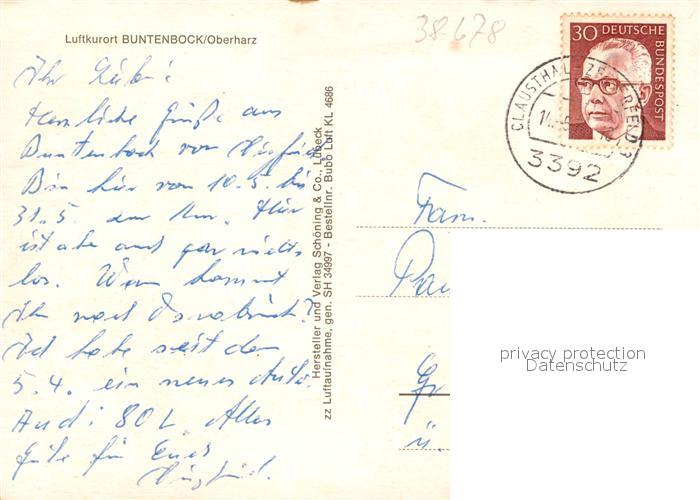 Luftkurort BUNTENBOCK/Oberharz
38678
Ihr Lieben!
Herzliche Grüße aus
Buntenbock von
Bin hier vom 10.5. bis
31.5. zur Kur. Hier
ist aber auch gar nichts
los. Wann kommt
Ihr nach Osnabrück?
Ich habe seit dem
5.4. ein neues Auto.
Audi 80 L. Alles
Gute für Euch
Hersteller und Verlag Schöning & Co., Lübeck
zz Luftaufnahme, gen. SH 34997 - Bestellnr. Bubo Luft KL 4686
30 DEUTSCHE
BUNDESPOST
CLAUSTHAL-ZELLERFELD
3392
Fam.
ü.
privacy protection
Datenschutz